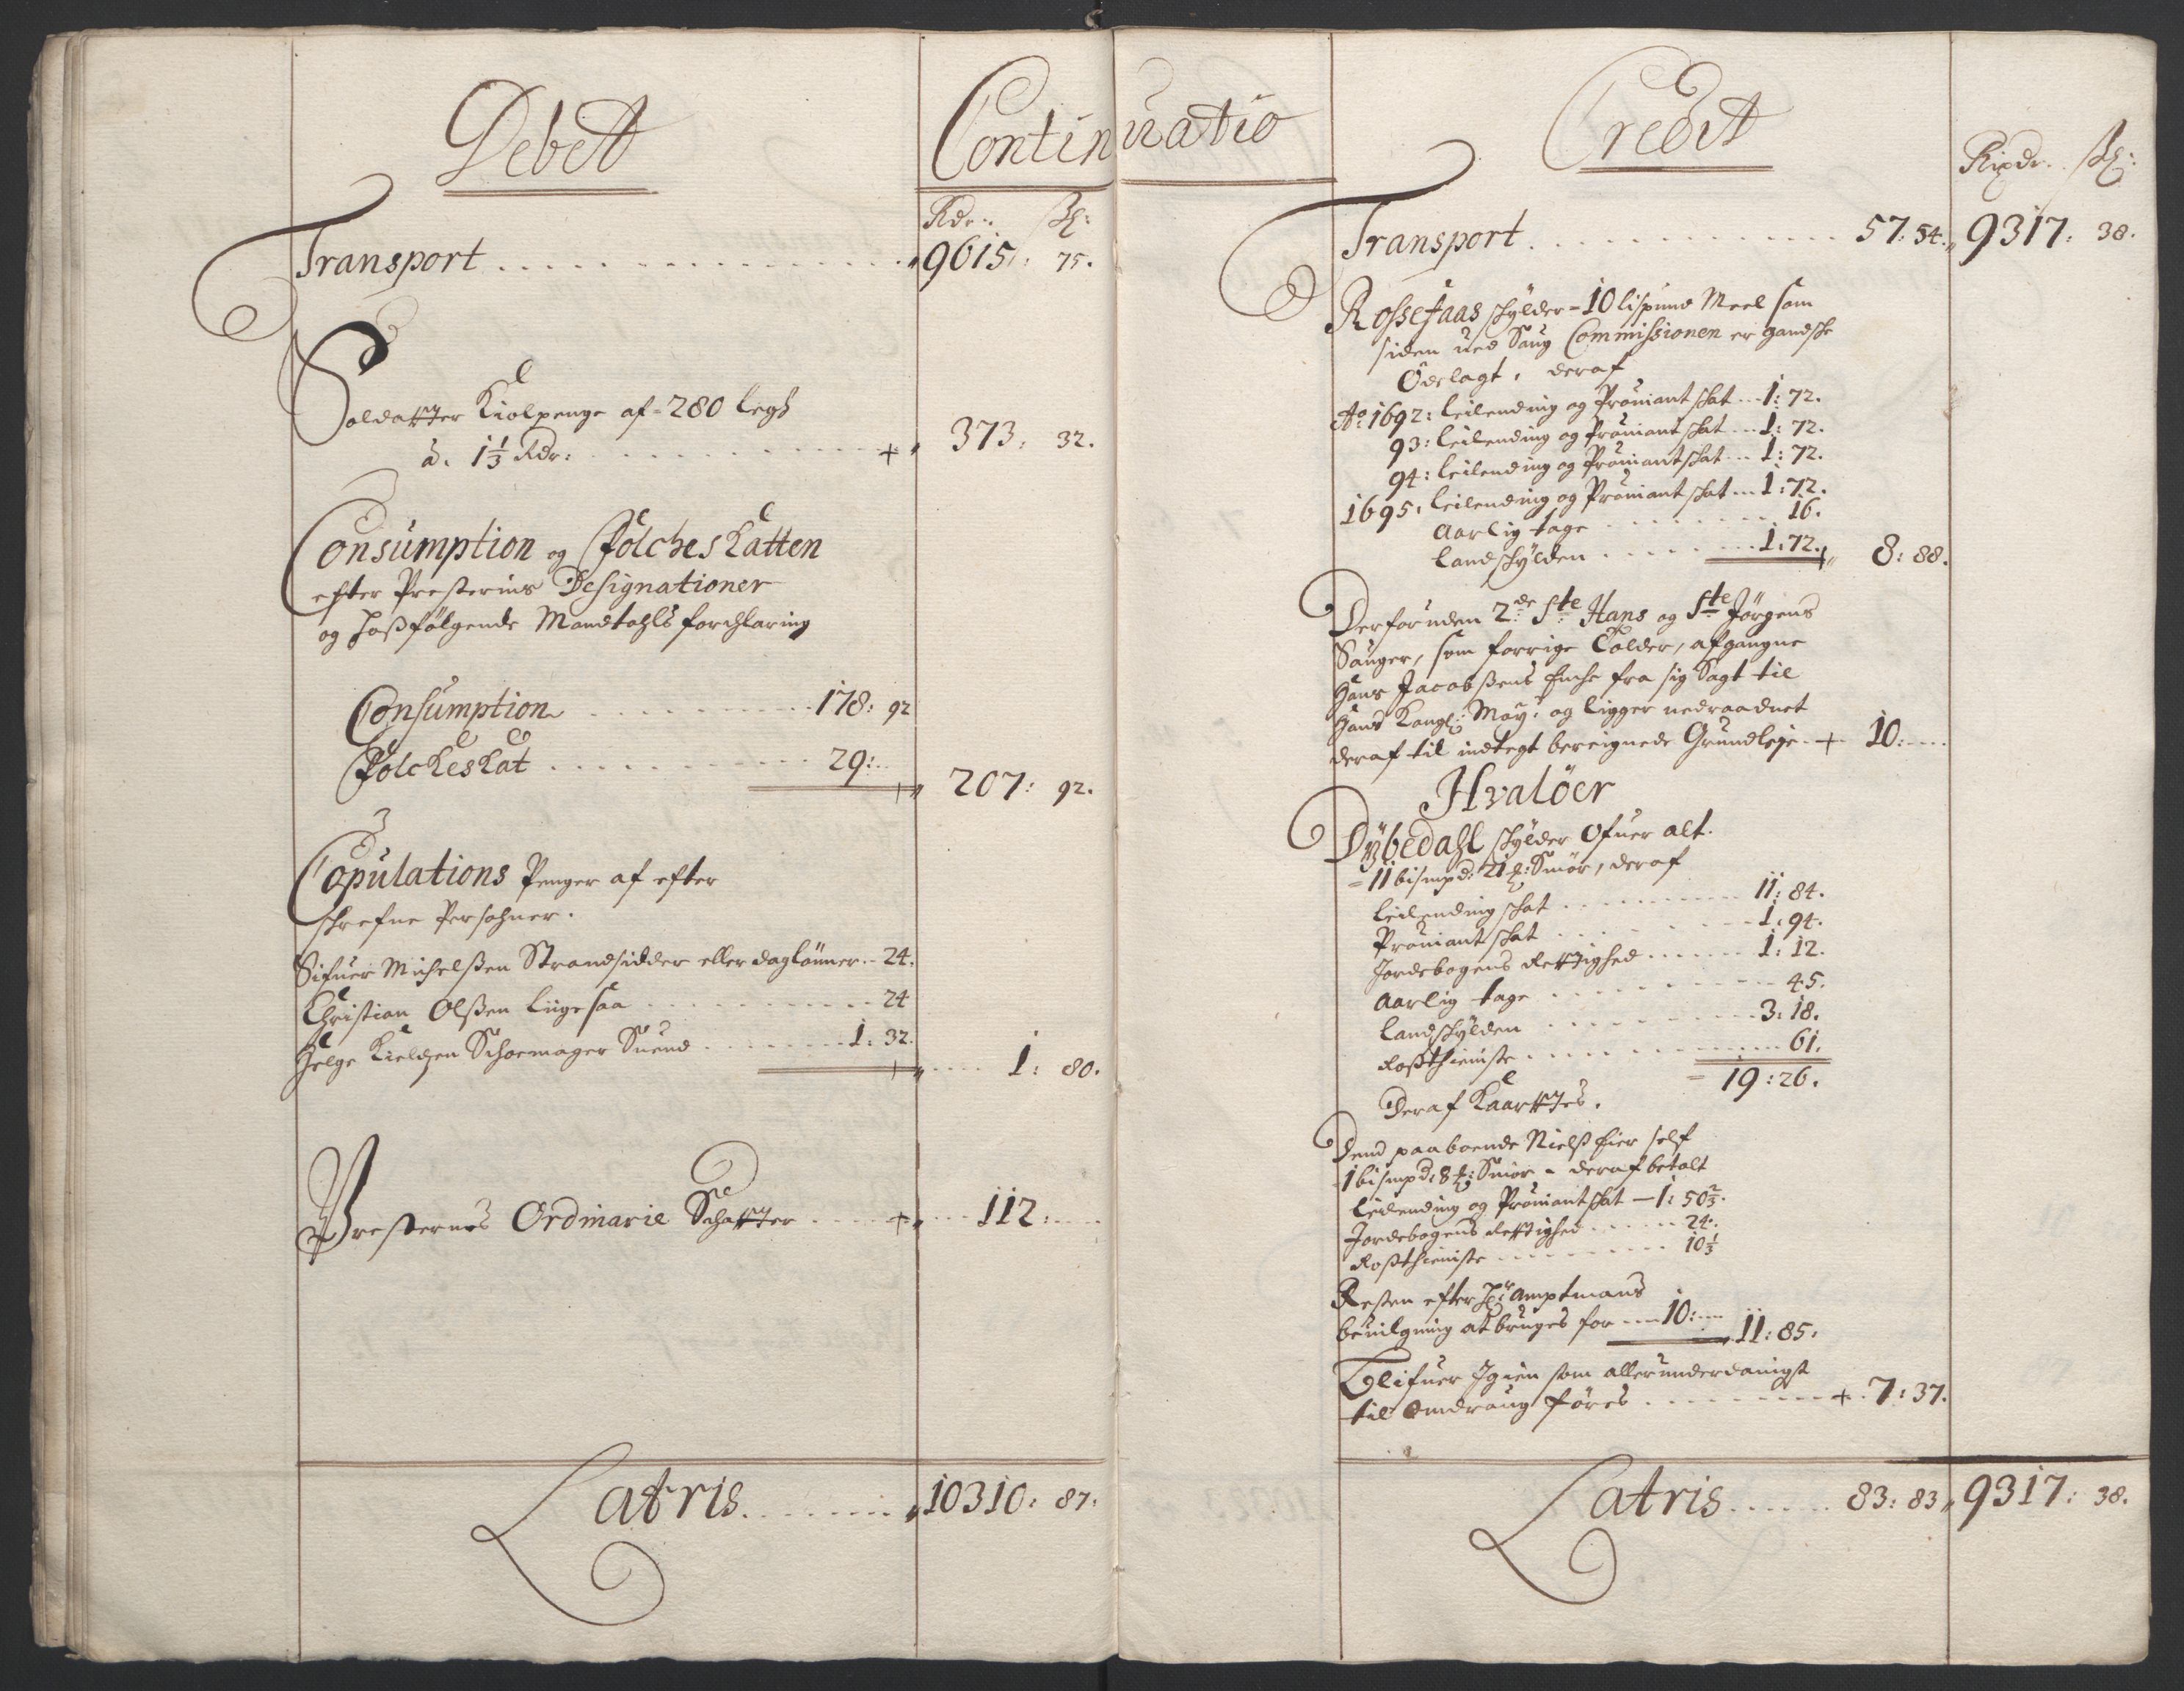 Debet
Continuatio
Rdr: ßl:
Transport . . . . 9615: 75.
Soldatter Kiolpenge af = 280 legs
à. 1 1/3 Rdr: . . . . + 373: 32.
Consumption og Folcheskatten
efter Presternis Designationer
og hosfølgende Mandtahls forchlaring
Consumption . . . . 178: 92
Folckeskat . . . . 29:
207: 92.
Copulations Penger af efter
schrefne Persohner.
Sifuer Michelßen Strandsidder eller daglønner .. 24.
Christian Olßen liigesaa . . . . 24
Helge Kieldzen Schoemager Suend . . . . 1: 32.
1: 80.
Presternes Ordinarie Schatter . . . . + 112:
Latris . . . . 10310: 87.
Credit
Rixdr. ßl:
Transport . . . . 57: 54. 9317: 38.
Rossefaas schylder = 10 lispund Meel som
siden ved Saug Commissionen er gandsche
Ödelagt, deraf
Ao: 1692: leilending og Proviant schat .. 1: 72.
93: leilending og Proviant schat .. 1: 72.
94: leilending og Proviant schat .. 1: 72.
1695: leilending og Proviant schat .. 1: 72.
Aarlig tage . . . . 16.
landschylden . . . . 1: 72. + 8: 88.
Derforuden 2de Ste Hans og Ste Jørgens
Sauger, som forrige Tolder, afgangne
Hans Jacobßens Enche fra sig Sagt til
Hans Kongl: May: og ligger nedraadnet
deraf til indtegt bereignede Grundleje + 10:
Hvalöer
Dybedahl schylder ofuer alt.
= 11 bismpd: 21 ℔: Smör, deraf
leilending schat . . . . 11: 84.
Proviant schat . . . . 1: 94.
Jordebogens Rettighed . . . . 1: 12.
Aarlig tage . . . . 45.
landschylden . . . . 3: 18.
Roßthieniste . . . . 61.
= 19: 26.
Deraf Kaarttes.
Dend paaboende Nielß Eier self
1 bismpd: 8 ℔: Smör - deraf betalt
leilending og Proviant schat — 1: 50 2/3.
Jordebogens Rettighed . . . . 24.
Roßthieniste . . . . 10 1/3
Resten efter Hr: Amptmans
bevilgning at bruges for .... 10:
11: 85.
Blifuer Igien som allerunderdanigst
til Omdraug föres . . . . + 7: 37.
Latris . . . . 83: 83 9317: 38.